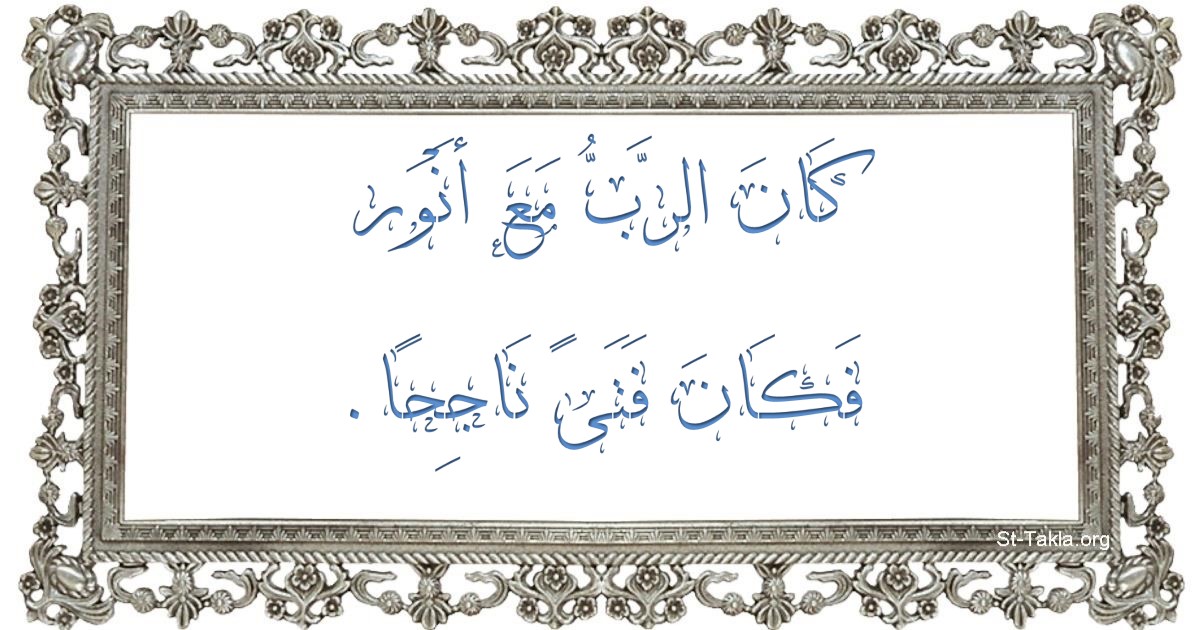 كَانَ الرَّبُّ مَعَ أنْوَر
فَكَانَ فَتَىً نَاجِحًا .
St-Takla.org